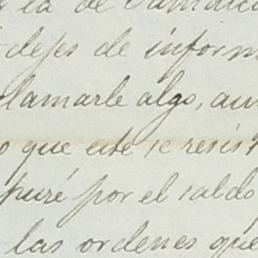 la de
dejes de inform
lamarle algo, aun
o que este se resist
puré por el saldo
las ordenes que